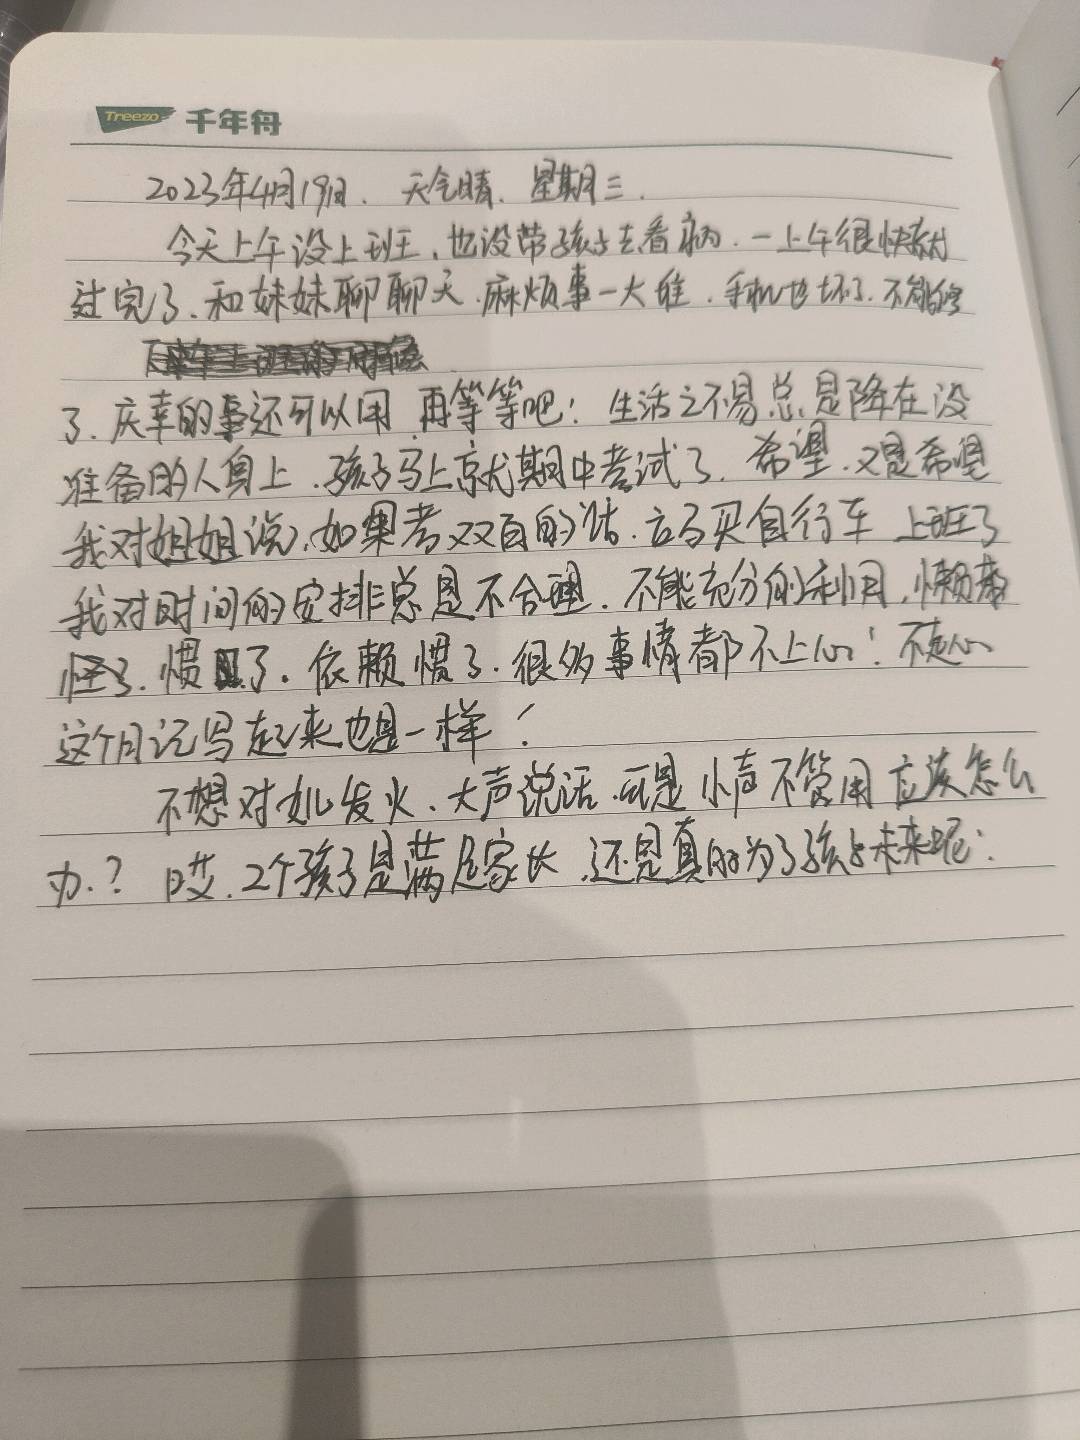 Treezo 千年舟
2023年4月19日. 天气晴. 星期三.
今天上午没上班, 也没带孩子去看病. 一上午很快就
过完了. 和妹妹聊聊天. 麻烦事一大堆. 手机也坏了. 不能修
了. 庆幸的事还可以用 再等等吧! 生活之不易总是降在没
准备的人身上. 孩子马上就期中考试了. 希望. 又是希望
我对姐姐说, 如果考双百的话. 立马买自行车 上班了
我对时间的安排总是不合理. 不能充分的利用, 懒散
怪了. 惯了. 依赖惯了. 很多事情都不上心! 不走心
这个日记写起来也是一样!
不想对她发火. 大声说话. 可是小声不管用 应该怎么
办.? 哎. 2个孩子是满足家长. 还是真的为了孩子未来呢: